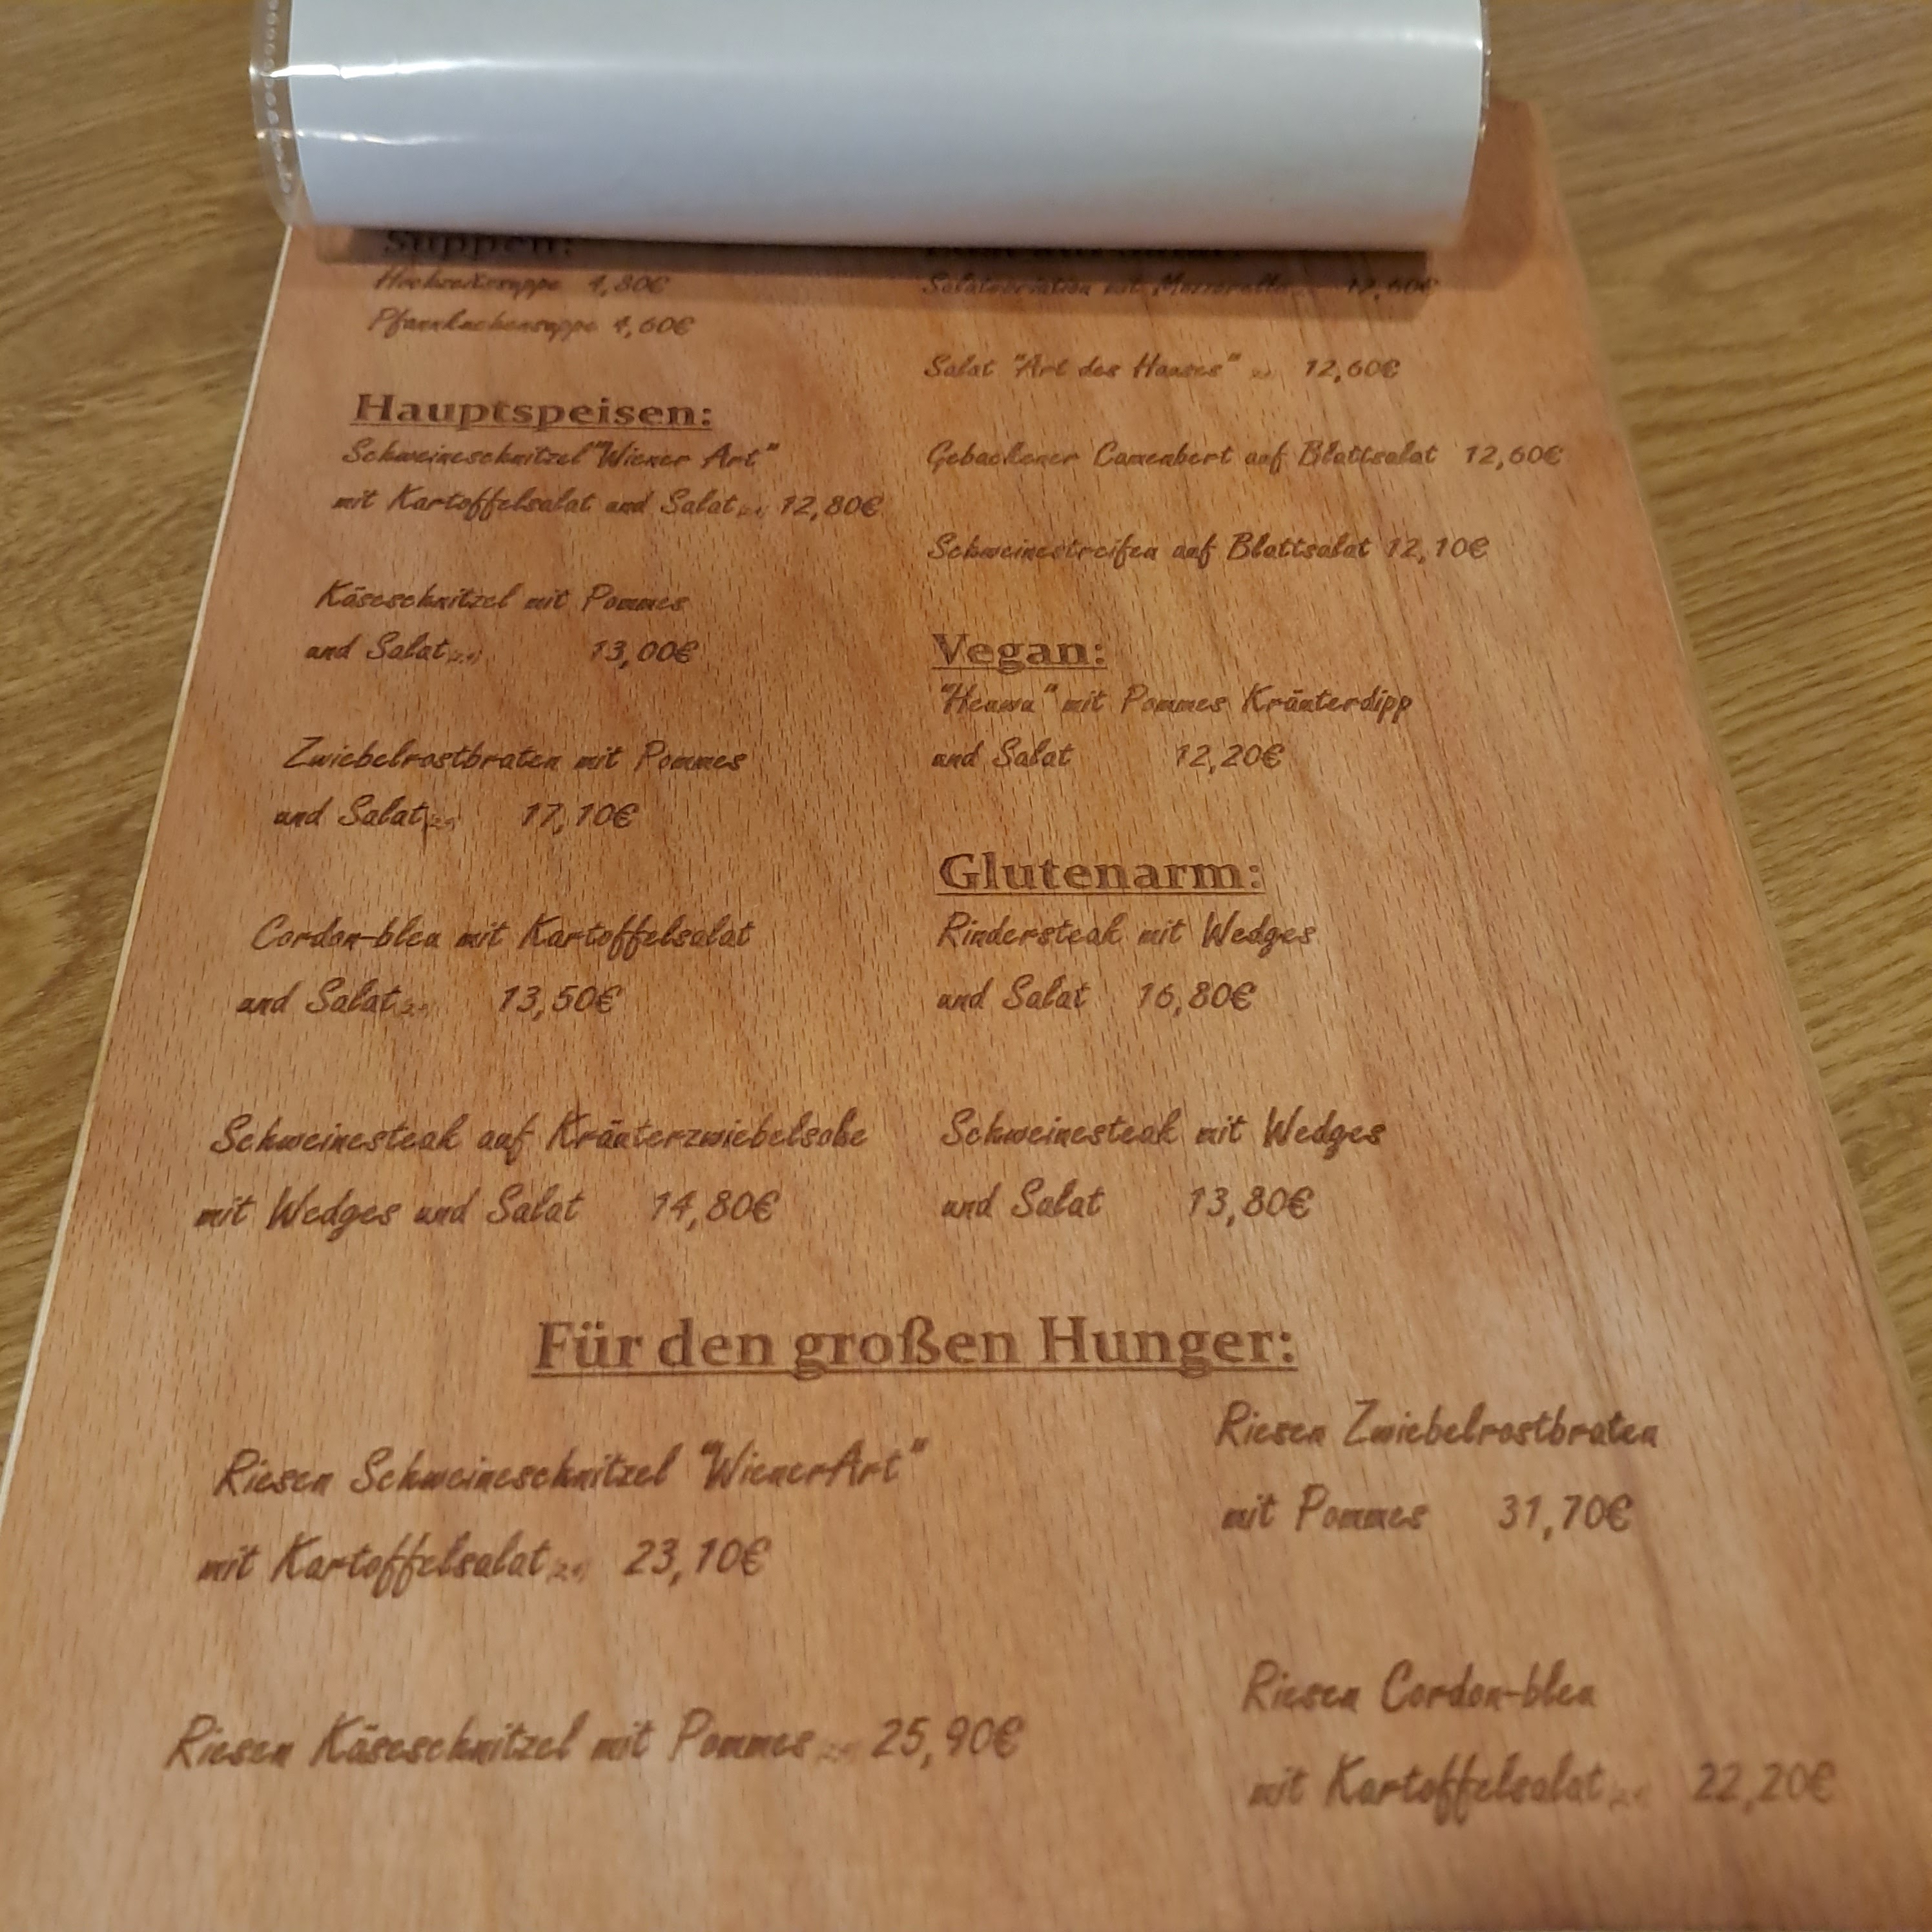 Suppen:
Hochzeitssuppe 4,80€
Pfannkuchensuppe 4,60€
Hauptspeisen:
Schweineschnitzel "Wiener Art"
mit Kartoffelsalat und Salat 12,80€
Käseschnitzel mit Pommes
und Salat 13,00€
Zwiebelrostbraten mit Pommes
und Salat 17,10€
Cordon-bleu mit Kartoffelsalat
und Salat 13,50€
Schweinesteak auf Kräuterzwiebelsoße
mit Wedges und Salat 14,80€
Salatvariation mit Mozzarella
Salat "Art des Hauses" 12,60€
Gebackener Camenbert auf Blattsalat 12,60€
Schweinestreifen auf Blattsalat 12,10€
Vegan:
mit Pommes Kräuterdipp
und Salat 12,20€
Glutenarm:
Rindersteak mit Wedges
und Salat 16,80€
Schweinesteak mit Wedges
und Salat 13,80€
Für den großen Hunger:
Riesen Schweineschnitzel "WienerArt"
mit Kartoffelsalat 23,10€
Riesen Käseschnitzel mit Pommes 25,90€
Riesen Zwiebelrostbraten
mit Pommes 31,70€
Riesen Cordon-bleu
mit Kartoffelsalat 22,20€